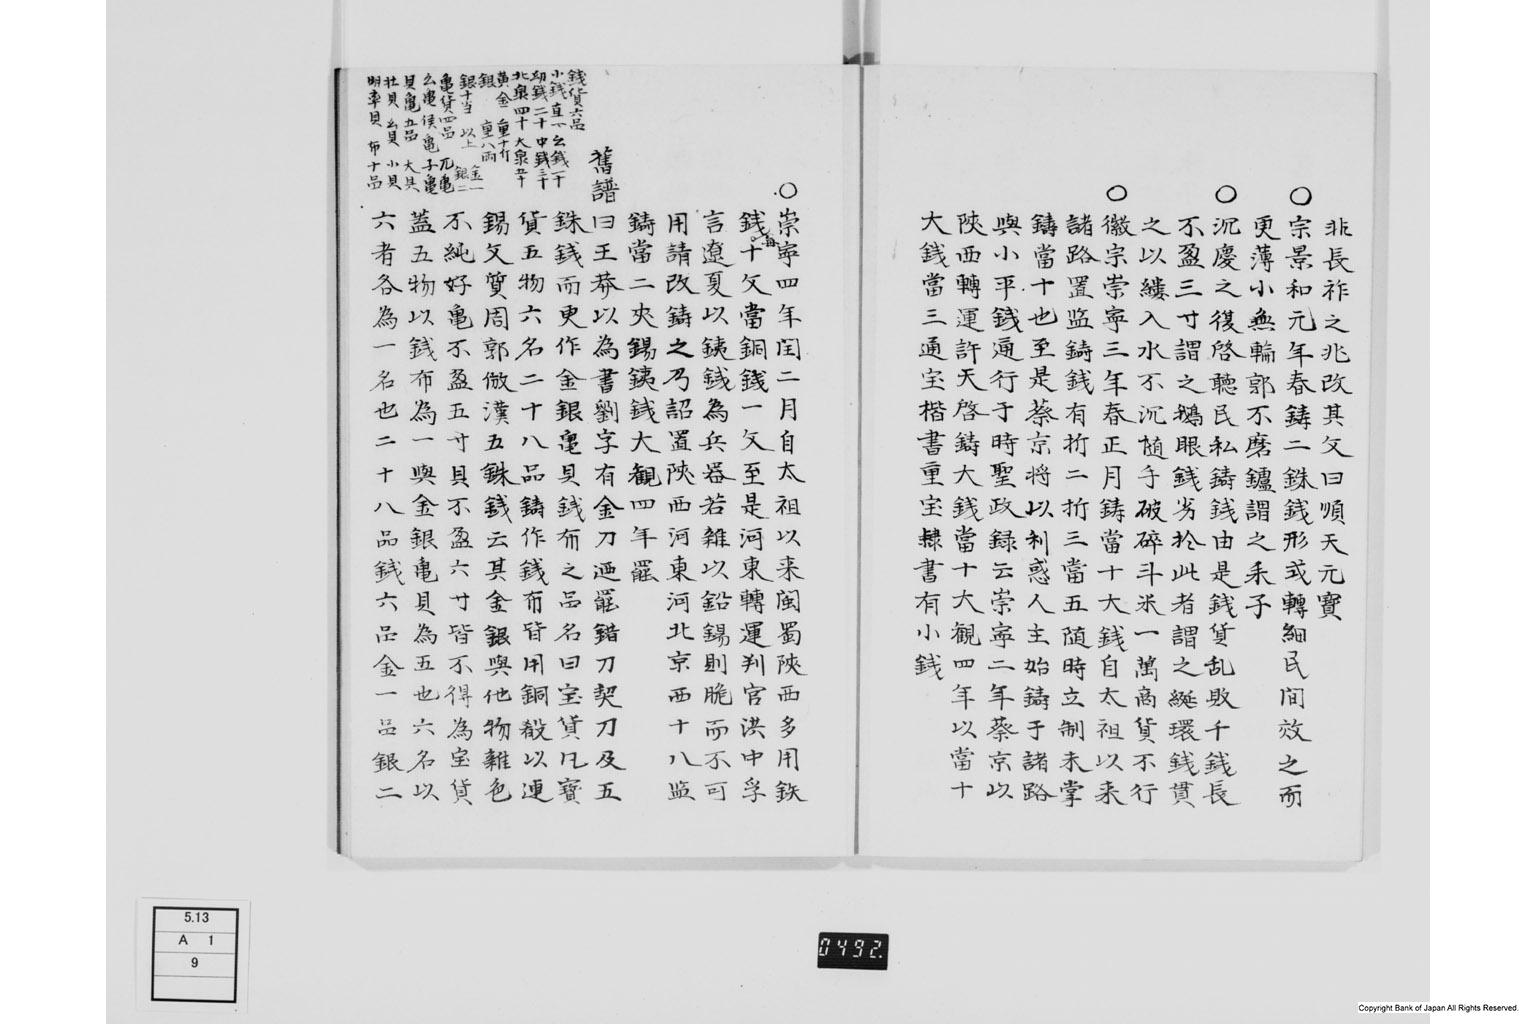 非長祚之兆改其文曰順天元寶
○宗景和元年春鋳二銖銭形式轉細民間效之而
更薄小無輪郭不磨鑪謂之耒子
○沉慶之復啓聴民私鋳銭由是銭貨乱敗千銭長
不盈三寸謂之鵝眼銭劣於此者謂之綖環銭貫
之以縷入水不沉随手破碎斗米一萬商貨不行
○徽宗崇寧三年春正月鋳當十大銭自太祖以来
諸路置监鋳銭有折二折三當五随時立制未掌
鋳當十也至是蔡京将以利惑人主始鋳于諸路
與小平銭通行于時聖政録云崇寧二年蔡京以
陝西轉運許天啓鋳大銭當十大観四年以當十
大銭當三通宝楷書重宝隸書有小銭
○崇寧四年閏二月自太祖以来闽蜀陝西多用鉄
銭十文當銅銭一文至是河東轉運判官洪中孚
毎
言遼夏以銕銭為兵器若雜以鉛錫則脆而不可
用請改鋳之乃詔置陝西河東河北京西十八监
鋳當二夾錫銕銭大観四年罷
舊譜
曰王莽以為書劉字有金刀迺罷錯刀契刀及五
銖銭而更作金銀亀貝銭布之品名曰宝貨凡寳
貨五物六名二十八品鋳作銭布皆用銅殽以連
錫文質周郭倣漢五銖銭云其金銀與他物雜色
不純好亀不盈五寸貝不盈六寸皆不得為宝貨
蓋五物以銭布為一與金銀亀貝為五也六名以
六者各為一名也二十八品銭六品金一品銀二
銭貨六品
小銭直一 幺銭一十
幼銭二十 中銭三十
北泉四十 大泉五十
黄金 重十斤
銀 重八両
銀十当 以上 金一 銀二
亀貨四品 元亀
幺亀 侯亀 子亀
貝亀五品 大貝
壮貝 幺貝 小貝
明率貝 布十品
5.13
A 1
9
0492.
Copyright Bank of Japan All Rights Reserved.